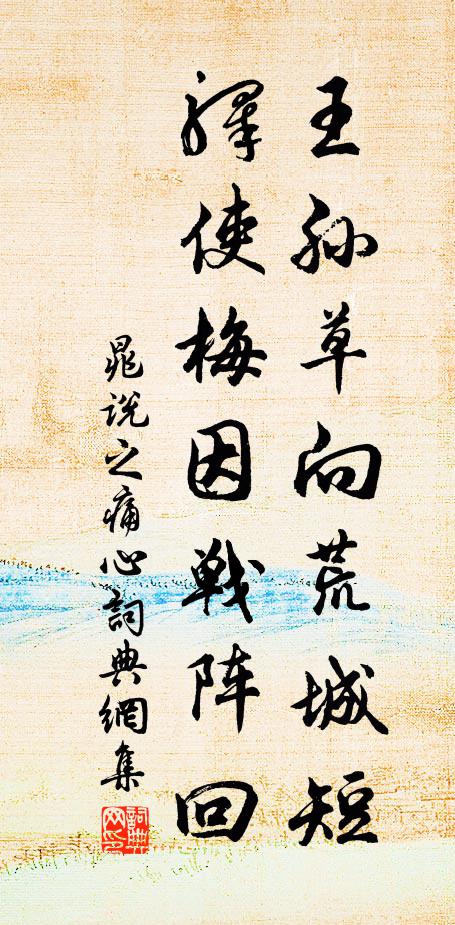 王孙草向荒城短
驿使梅因戰阵回
晁说之痛心詞典網集
詞典网印